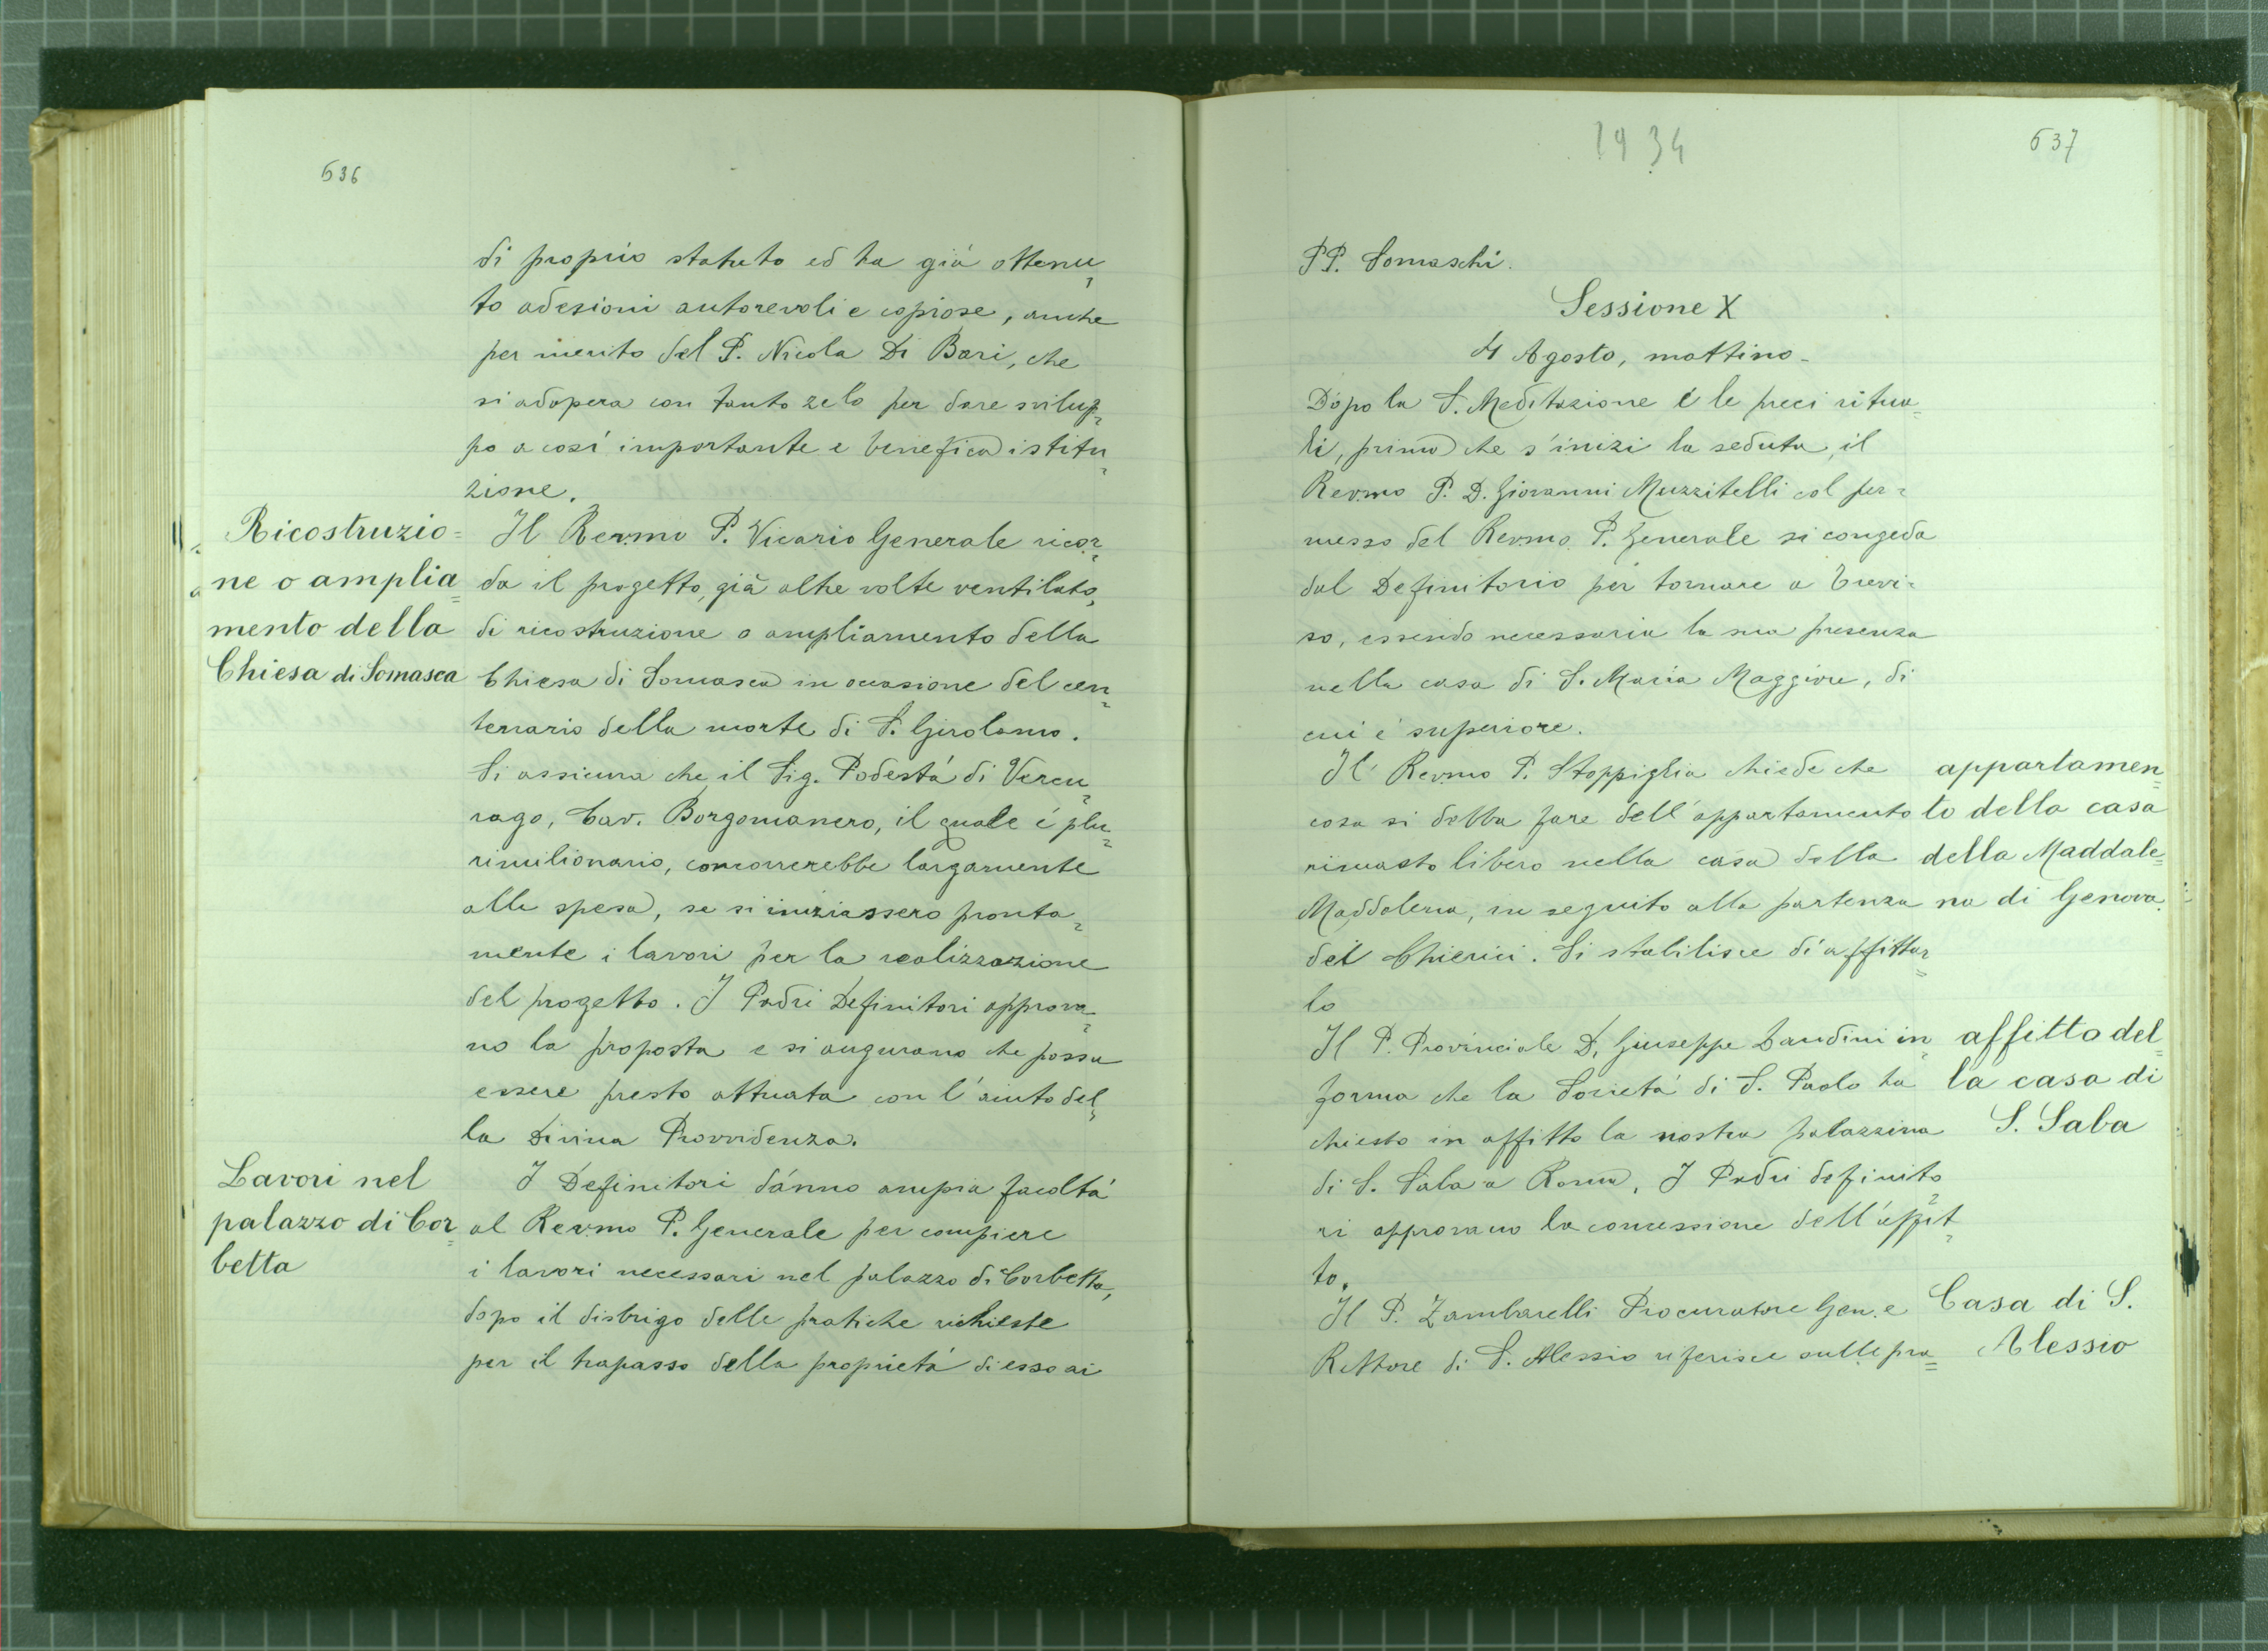 636
di proprio statuto ed ha già ottenu=
to adesioni autorevoli e copiose, anche
per merito del P. Nicola Di Bari, che
si adopera con tanto zelo per dare svilup=
po a così importante e benefica istitu=
zione.
Ricostruzio=
ne o amplia=
mento della
Chiesa di Somasca
Il Rev.mo P. Vicario Generale ricor=
da il progetto, già altre volte ventilato,
di ricostruzione o ampliamento della
Chiesa di Somasca in occasione del cen=
tenario della morte di S. Girolamo.
Si assicura che il Sig. Podestá di Vercu=
rago, Cav. Borgomanero, il quale é plu=
rimilionario, concorrerebbe largamente
alla spesa, se si iniziassero pronta=
mente i lavori per la realizzazione
del progetto. I Padri Definitori approva=
no la proposta e si augurano che possa
essere presto attuata con l'aiuto del=
la Divina Provvidenza.
Lavori nel
palazzo di Cor=
betta
I Definitori dánno ampia facoltá
al Rev.mo P. Generale per compiere
i lavori necessari nel palazzo di Corbetta,
dopo il disbrigo delle pratiche richieste
per il trapasso della proprietá di esso ai
1934
637
PP. Somaschi.
Sessione X
4 Agosto, mattino-
Dopo la S. Meditazione e le preci ritua=
li, prima che s'inizi la seduta, il
Rev.mo P. D. Giovanni Muzzitelli col per=
messo del Rev.mo P. Generale si congeda
dal Definitorio per tornare a Trevi=
so, essendo necessaria la sua presenza
nella casa di S. Maria Maggiore, di
cui é superiore.
Il Rev.mo P. Stoppiglia chiede che
cosa si debba fare dell'appartamento
rimasto libero nella casa della
Maddalena, in seguito alla partenza
dei Chierici. Si stabilisce di affittar=
lo
appartamen=
to della casa
della Maddale=
na di Genova.
Il P. Provinciale D. Giuseppe Landini in=
forma che la Societá di S. Paolo ha
chiesto in affitto la nostra palazzina
di S. Saba a Roma. I Padri definito
ri approvano la concessione dell'affit=
to.
affitto del=
la casa di
S. Saba
Il P. Zambarelli Procuratore Gen. e
Rettore di S. Alessio riferisce sulle pra=
Casa di S.
Alessio